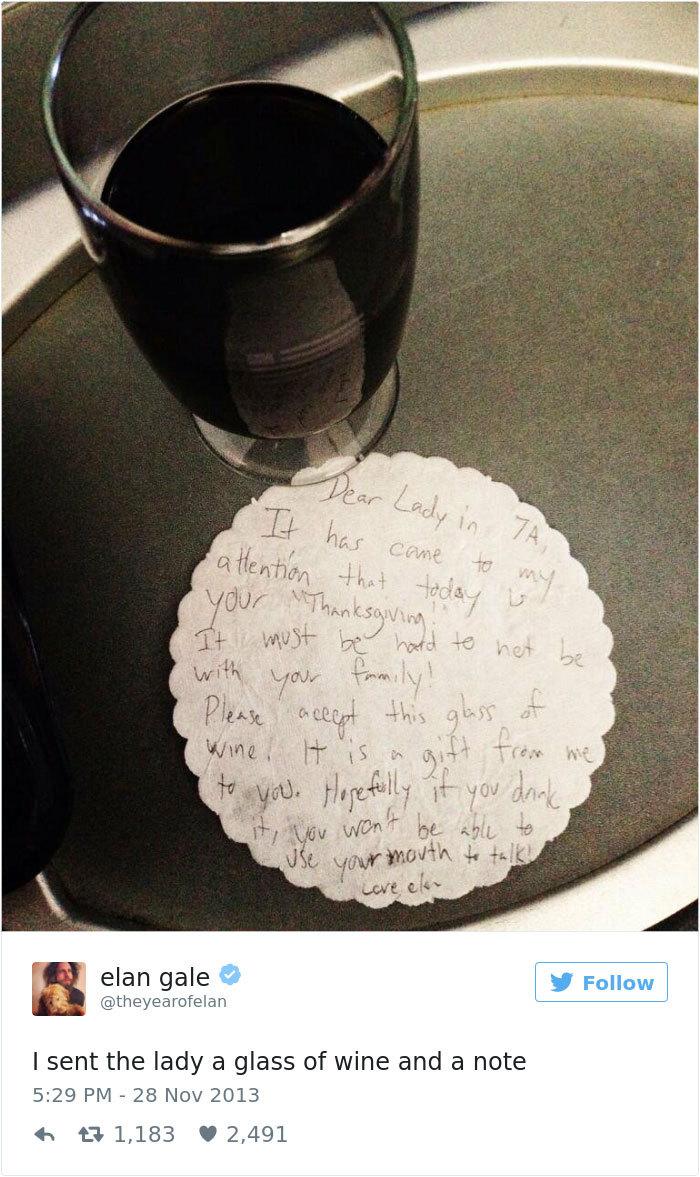 Dear Lady in 7A,
It has come to my
attention that today is
your "Thanksgiving!"
It must be hard to not be
with your family!
Please accept this glass of
wine. It is a gift from me
to you. Hopefully if you drink
it, you won't be able to
use your mouth to talk!
Love, elan
elan gale
@theyearofelan
Follow
I sent the lady a glass of wine and a note
5:29 PM - 28 Nov 2013
1,183 2,491